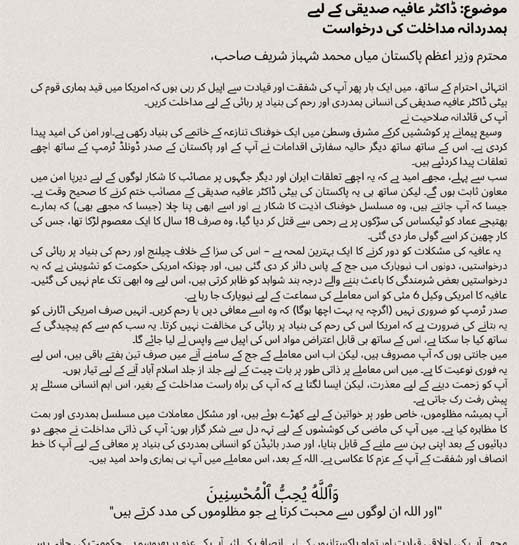 موضوع: ڈاکٹر عافیہ صدیقی کے لیے
ہمدردانہ مداخلت کی درخواست
محترم وزیر اعظم پاکستان میاں محمد شہباز شریف صاحب،
انتہائی احترام کے ساتھ، میں ایک بار پھر آپ کی شفقت اور قیادت سے اپیل کر رہی ہوں کہ امریکا میں قید ہماری قوم کی
بیٹی ڈاکٹر عافیہ صدیقی کی انسانی ہمدردی اور رحم کی بنیاد پر رہائی کے لیے مداخلت کریں۔
آپ کی قائدانہ صلاحیت نے
وسیع پیمانے پر کوششیں کرکے مشرق وسطیٰ میں ایک خوفناک تنازعہ کے خاتمے کی بنیاد رکھی ہے۔اور امن کی امید پیدا
کردی ہے۔ اس کے ساتھ ساتھ دیگر حالیہ سفارتی اقدامات نے آپ کے اور پاکستان کے صدر ڈونلڈ ٹرمپ کے ساتھ اچھے
تعلقات پیدا کردیئے ہیں۔
سب سے پہلے، مجھے امید ہے کہ یہ اچھے تعلقات ایران اور دیگر جگہوں پر مصائب کا شکار لوگوں کے لیے دیرپا امن میں
معاون ثابت ہوں گے۔ لیکن ساتھ ہی یہ پاکستان کی بیٹی ڈاکٹر عافیہ صدیقی کے مصائب ختم کرنے کا صحیح وقت ہے۔
جیسا کہ آپ جانتے ہیں، وہ مسلسل خوفناک اذیت کا شکار ہے اور اسے ابھی پتا چلا (جیسا کہ مجھے بھی) کہ ہمارے
بھتیجے عماد کو ٹیکساس کی سڑکوں پر بے رحمی سے قتل کر دیا گیا، وہ صرف 18 سال کا ایک معصوم لڑکا تھا، جس کی
کار چھین کر اسے گولی مار دی گئی۔
یہ عافیہ کی مشکلات کو دور کرنے کا ایک بہترین لمحہ ہے – اس کی سزا کے خلاف چیلنج اور رحم کی بنیاد پر رہائی کی
درخواستیں، دونوں اب نیویارک میں جج کے پاس دائر کر دی گئی ہیں، اور چونکہ امریکی حکومت کو تشویش ہے کہ یہ
درخواستیں بعض شرمندگی کا باعث بننے والے درجہ بند شواہد کو ظاہر کرتی ہیں، اس لیے وہ ابھی تک عام نہیں کی گئیں۔
عافیہ کا امریکی وکیل 6 مئی کو اس معاملے کی سماعت کے لیے نیویارک جا رہا ہے۔
صدر ٹرمپ کو ضروری نہیں (اگرچہ یہ بہت اچھا ہوگا) کہ وہ اسے معافی دیں یا رحم کریں۔ انہیں صرف امریکی اٹارنی کو
یہ بتانے کی ضرورت ہے کہ امریکا اس کی رحم کی بنیاد پر رہائی کی مخالفت نہیں کرتا۔ یہ سب کم سے کم پیچیدگی کے
ساتھ کیا جا سکتا ہے، اس کے ساتھ ہی قابل اعتراض مواد اس کی اپیل سے واپس لے لیا جائے گا۔
میں جانتی ہوں کہ آپ مصروف ہیں، لیکن اب اس معاملے کے جج کے سامنے آنے میں صرف تین ہفتے باقی ہیں، اس لیے
یہ فوری نوعیت کا ہے۔ میں اس معاملے پر ذاتی طور پر بات چیت کے لیے جلد از جلد اسلام آباد آنے کے لیے تیار ہوں۔
آپ کو زحمت دینے کے لیے معذرت، لیکن ایسا لگتا ہے کہ آپ کی براہ راست مداخلت کے بغیر، اس اہم انسانی مسئلے پر
پیش رفت رک جاتی ہے۔
آپ ہمیشہ مظلوموں، خاص طور پر خواتین کے لیے کھڑے ہوئے ہیں، اور مشکل معاملات میں مسلسل ہمدردی اور ہمت
کا مظاہرہ کیا ہے۔ میں آپ کی ماضی کی کوششوں کے لیے تہہ دل سے شکر گزار ہوں: آپ کی ذاتی مداخلت نے مجھے دو
دہائیوں کے بعد اپنی بہن سے ملنے کے قابل بنایا، اور صدر بائیڈن کو انسانی ہمدردی کی بنیاد پر معافی کے لیے آپ کا خط
انصاف اور شفقت کے آپ کے عزم کا عکاسی ہے۔ اللہ کے بعد، اس معاملے میں آپ ہی ہماری واحد امید ہیں۔
وَاللَّهُ يُحِبُّ الْمُحْسِنِينَ
"اور اللہ ان لوگوں سے محبت کرتا ہے جو مظلوموں کی مدد کرتے ہیں"